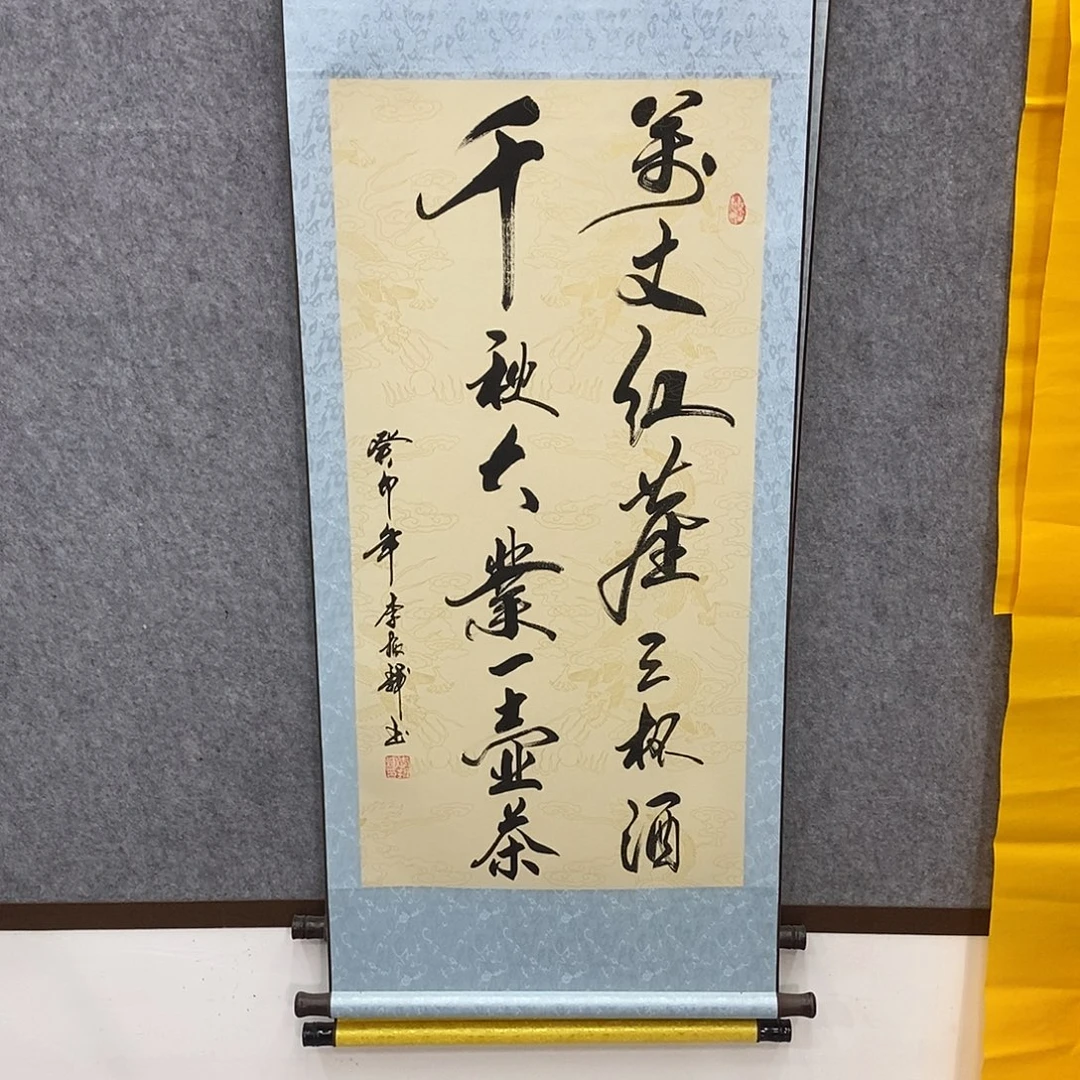 萬丈红塵三杯酒
千秋大業一壶茶
癸卯年李振輝书